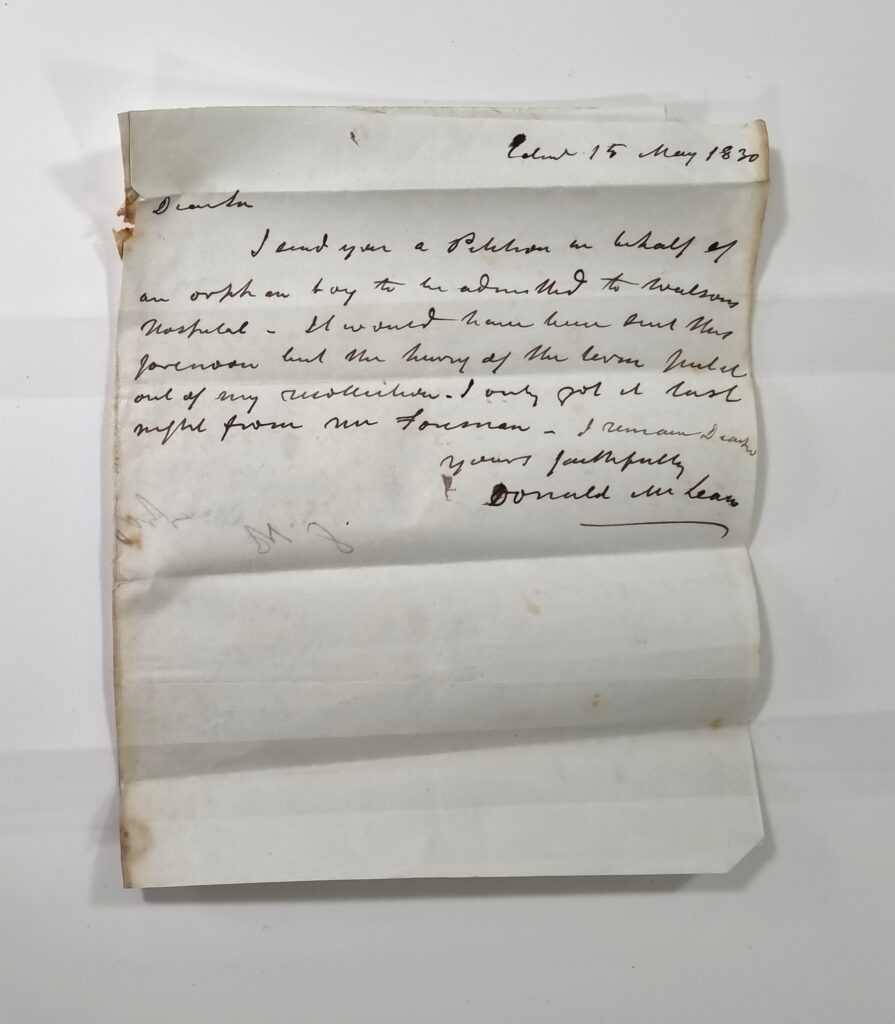 Edinr 15 May 1830
Dear Sir
I send you a Petition in behalf of
an orphan boy to be admitted to Watsons
Hospital - It would have been sent this
forenoon but the hurry of the term put it
out of my recollection. I only got it last
night from Mr Foreman - I remain Dear Sir
yours faithfully
Donald McLean